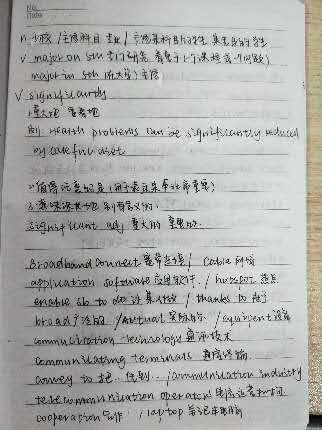 No.
Date
n. 少校/主修科目 专业/主修某科目的学生 某专业的学生
v major on sth 专门研究
major in sth (在大学)主修
v significantly
1.重大地 显著地
例 Health problems can be significantly reduced
by careful diet
2.值得注意的是
3.意味深长地 别有含义的
significant adj. 重大的 重要的
Broadband connect 宽带连接/ Cable 网络
application software 应用软件 / hotspot 热点
enable sb to do 让某人做 / thanks to 由于
broad 广泛的 / Actual 实际的 / equipment 设备
communication technology 通讯技术
communicating terminals 通信终端
convey to 把..传到.. / communication industry
telecommunication operators 电信运营
cooperation 合作 / laptop 笔记本电脑